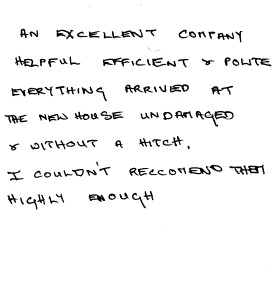 AN EXCELLENT COMPANY
HELPFUL EFFICIENT & POLITE
EVERYTHING ARRIVED AT
THE NEW HOUSE UNDAMAGED
& WITHOUT A HITCH.
I COULDN'T RECCOMEND THEM
HIGHLY ENOUGH